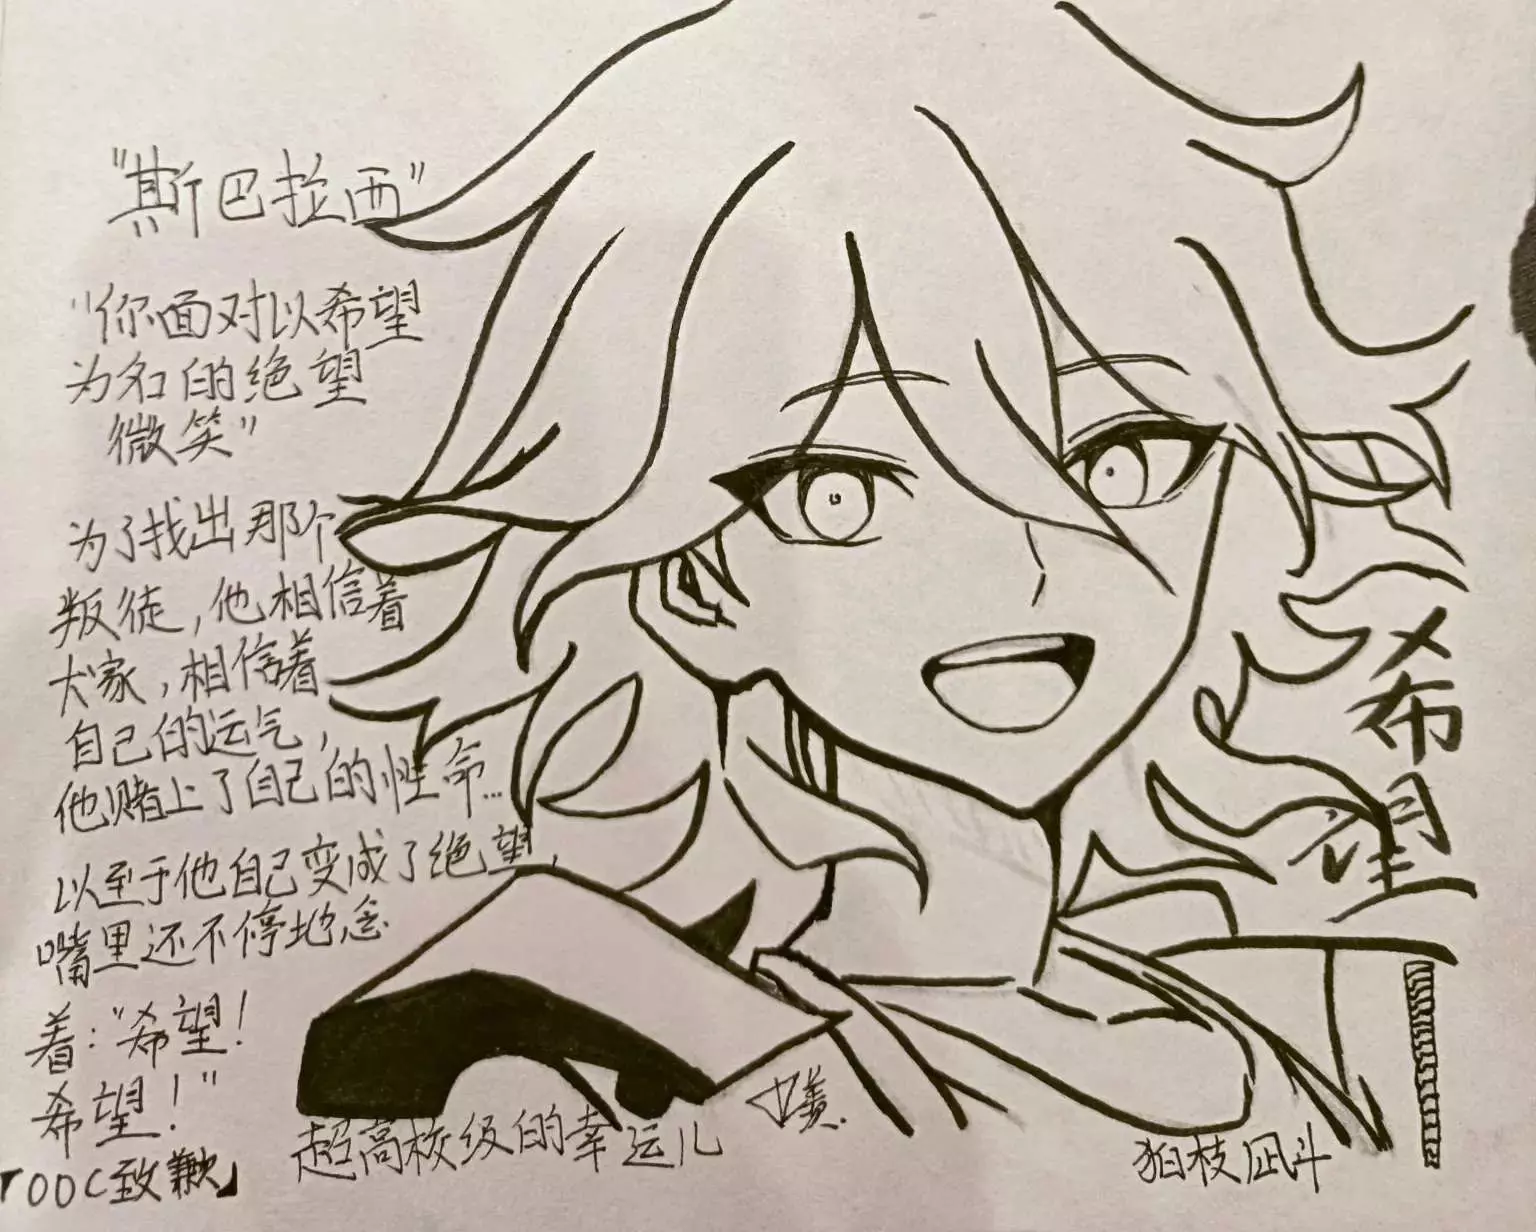 "斯巴拉西"
"你面对以希望
为名的绝望
微笑"
为了找出那个
叛徒,他相信着
大家,相信着
自己的运气,
他赌上了自己的性命...
以至于他自己变成了绝望,
嘴里还不停地念
着:"希望!
希望!"
「OOC致歉」
超高校级的幸运儿
狛枝凪斗
希望